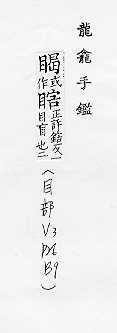 龍龕手鑑
或作
瞎
正許鎋反一
目盲也二
(目部 V3 P26 B9)